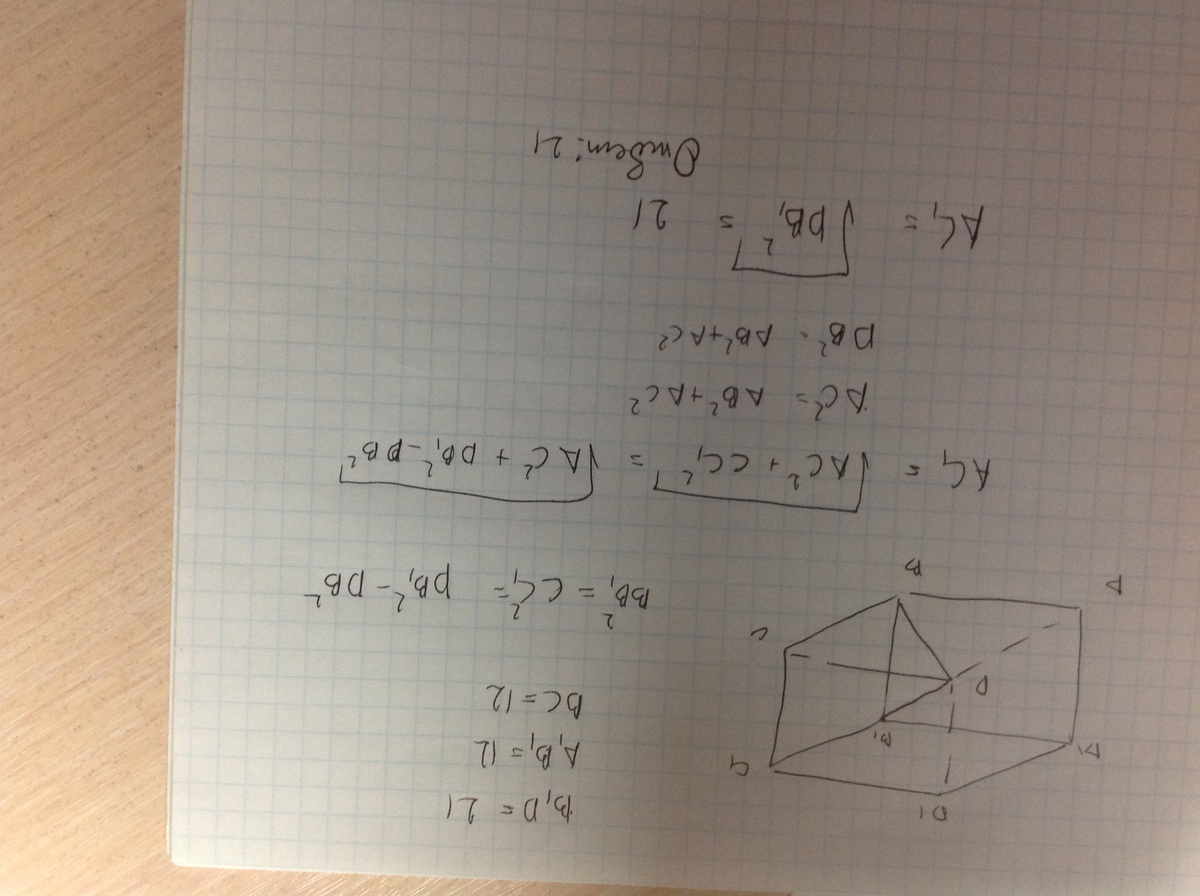 B₁D = 21
A₁B₁ = 12
BC = 12
BB₁² = CC₁² = DB₁² - DB²
D1
C1
A1
B1
D
C
A
B
AC₁ = √AC² + CC₁² = √AC² + DB₁² - DB²
AC² = AB² + AC²
DB² = AB² + AC²
AC₁ = √DB₁² = 21
Ответ: 21